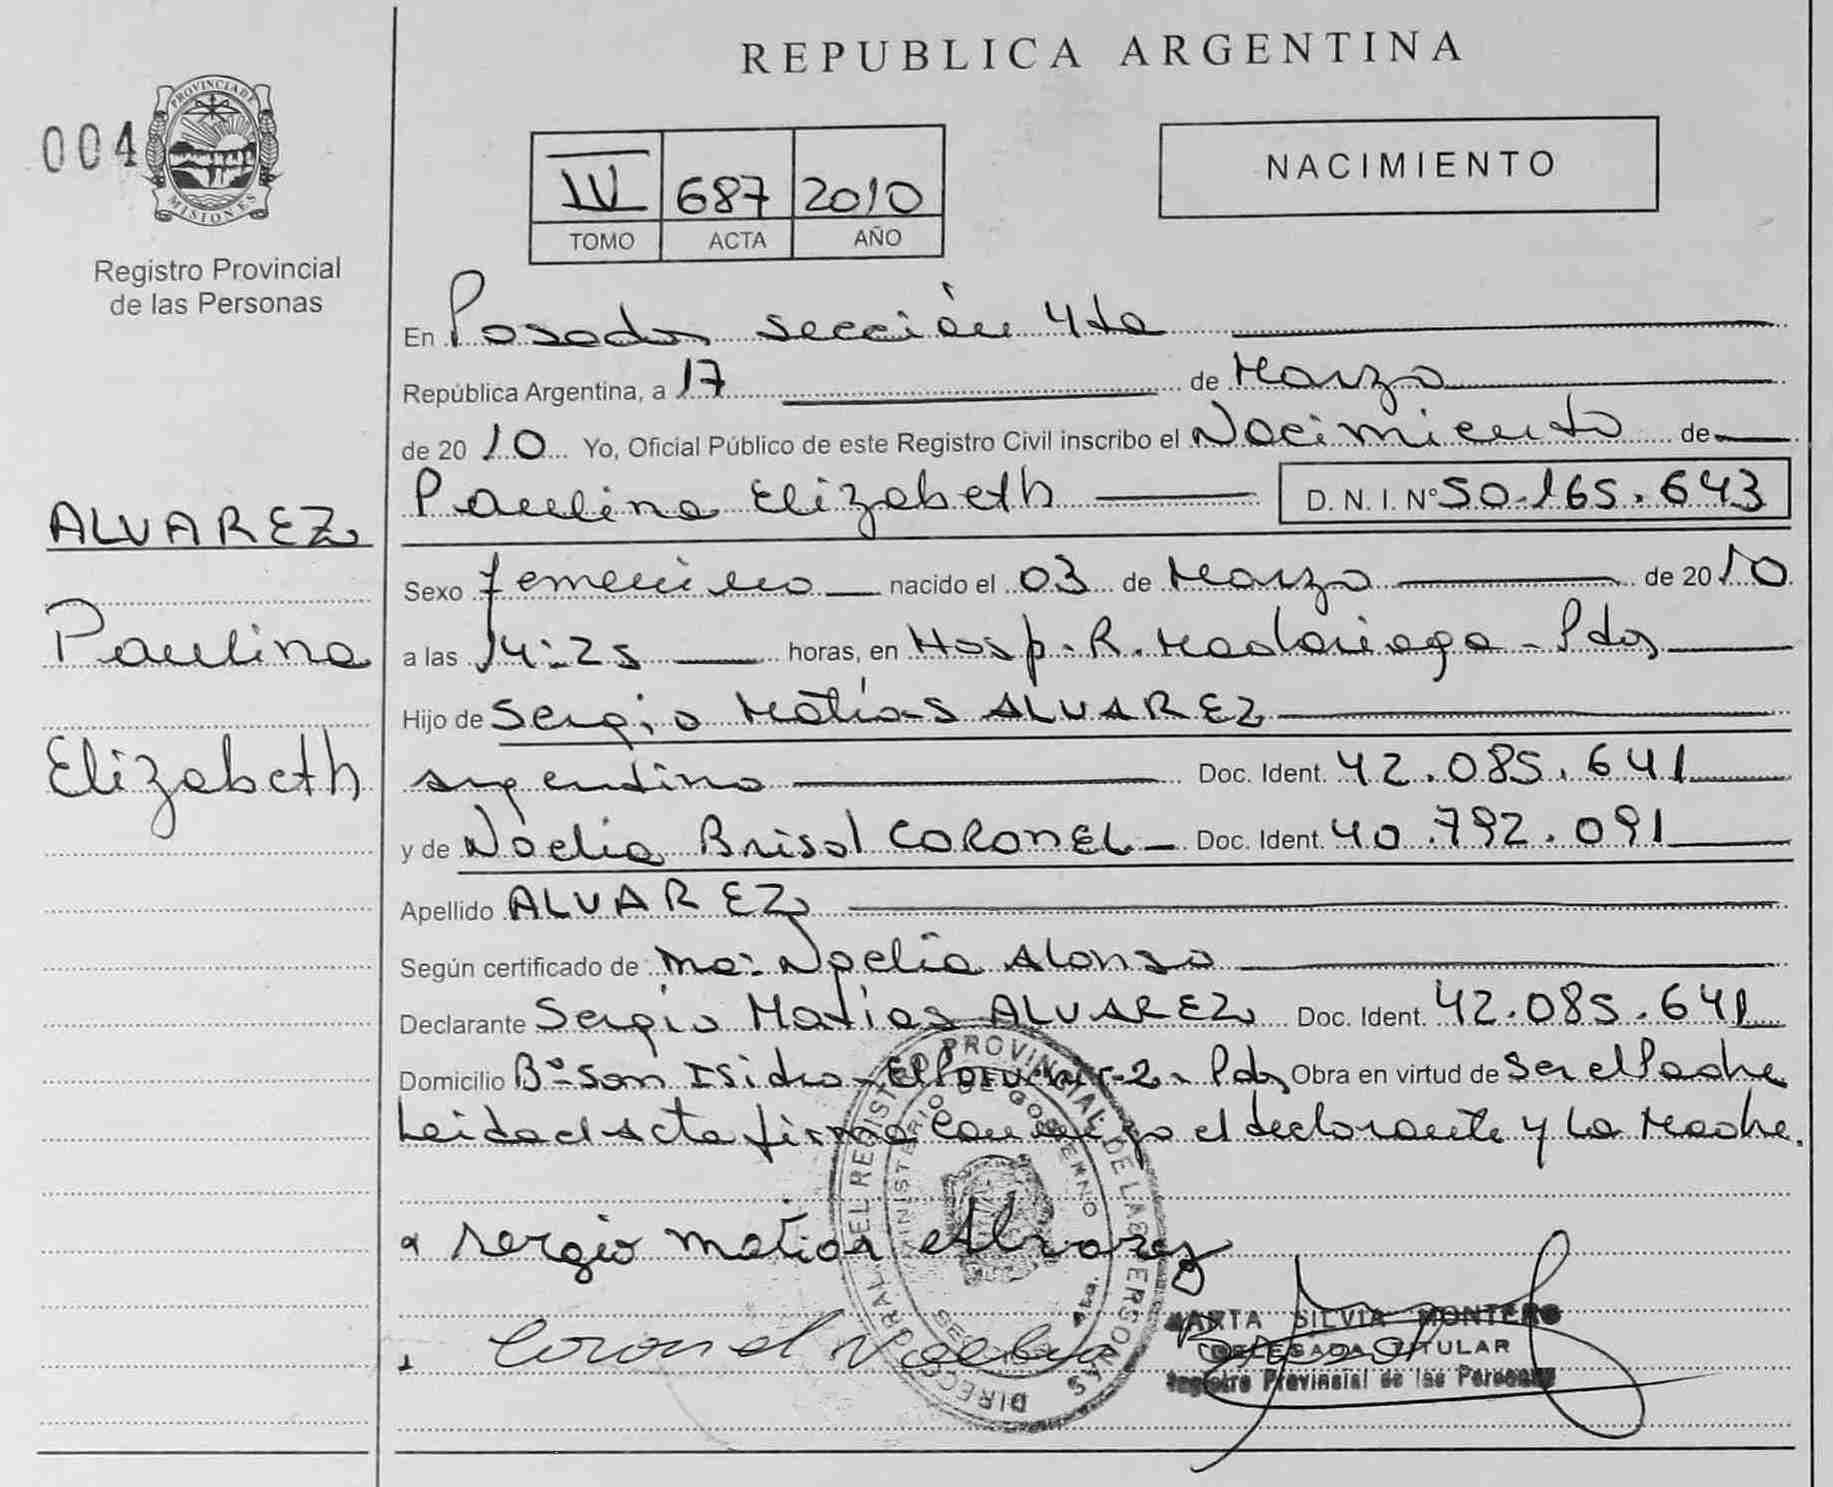 REPUBLICA ARGENTINA
004
PROVINCIA DE
MISIONES
Registro Provincial
de las Personas
IV 687 2010
TOMO ACTA AÑO
NACIMIENTO
En Posadas sección 4ta
República Argentina, a 17 de Marzo
de 2010 Yo, Oficial Público de este Registro Civil inscribo el Nacimiento de
Paulina Elizabeth D. N. I. Nº 50.165.643
ALVAREZ
Paulina
Elizabeth
Sexo femenino nacido el 03 de Marzo de 2010
a las 14:25 horas, en Hosp. R. Madariaga - Pdas
Hijo de Sergio Matías ALVAREZ
argentino Doc. Ident. 42.085.641
y de Noelia Brisol CORONEL Doc. Ident. 40.792.091
Apellido ALVAREZ
Según certificado de Ma: Noelia Alonso
Declarante Sergio Matias ALVAREZ Doc. Ident. 42.085.641
Domicilio Bº San Isidro - Pdas Obra en virtud de Ser el Padre
Leida el Acta firma conmigo el declarante y La Madre.
Sergio matias Alvarez
Coronel Noelia
Brisol
MARTA SILVIA MONTERO
DELEGADA TITULAR
Registro Provincial de las Personas
DIRECC. GRAL. DEL REGISTRO PROVINCIAL DE LAS PERSONAS
MINISTERIO DE GOBIERNO
4ta.